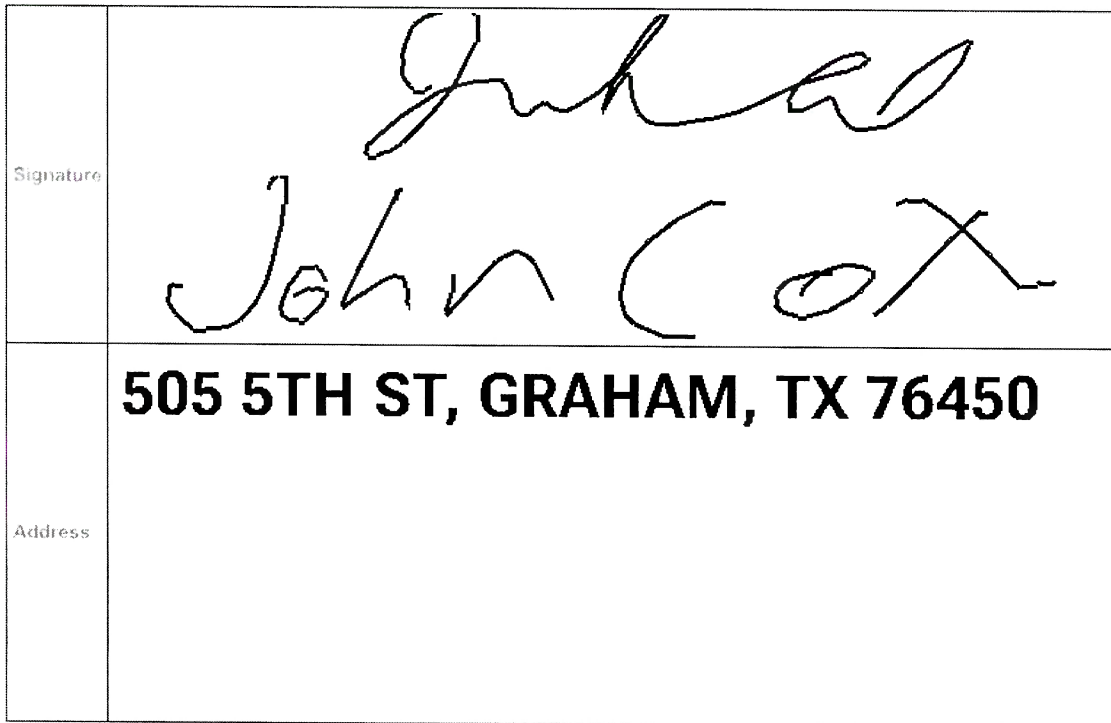 Signature
John Cox
Address
505 5TH ST, GRAHAM, TX 76450